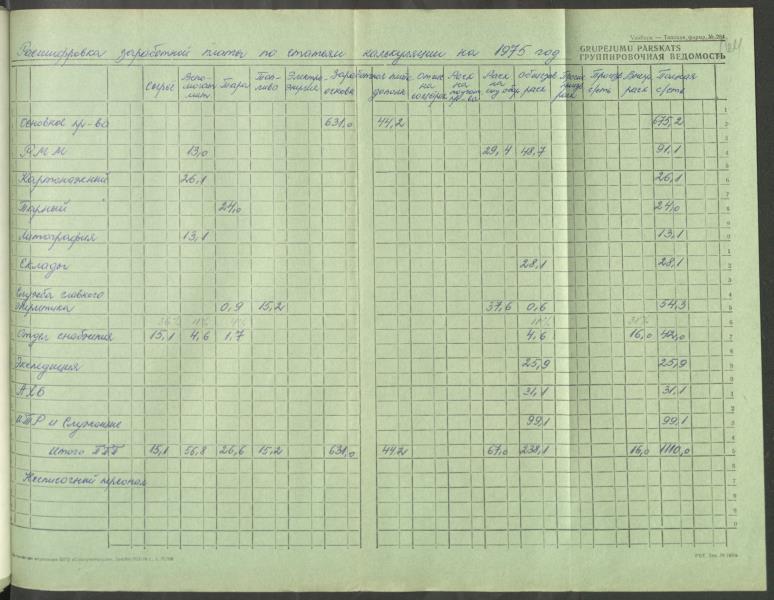 Расшифровка заработной платы по статьям калькуляции на 1975 год
GRUPĒJUMU PĀRSKATS
ГРУППИРОВОЧНАЯ ВЕДОМОСТЬ
Сырье Вспомогат мат Тара Топливо Электроэнергия Заработная плата основн дополн расх на сод обор общезав расх Произв с/сть Внепр. расх Полная с/сть
Основное пр-ва 631,0 44,2 675,2
РММ 13,0 29,4 48,7 91,1
Картонажный 26,1 26,1
Тарный 24,0 24,0
Литография 13,1 13,1
Склады 28,1 28,1
Служба главного
энергетика 0,9 15,2 37,6 0,6 54,3
36% 11% 4% 11% 38%
Отдел снабжения 15,1 4,6 1,7 4,6 16,0 42,0
Экспедиция 25,9 25,9
АХО 31,1 31,1
ИТР и Служащие 99,1 99,1
Итого ППП 15,1 56,8 26,6 15,2 631,0 44,2 67,0 238,1 16,0 1110,0
Несписочный персонал